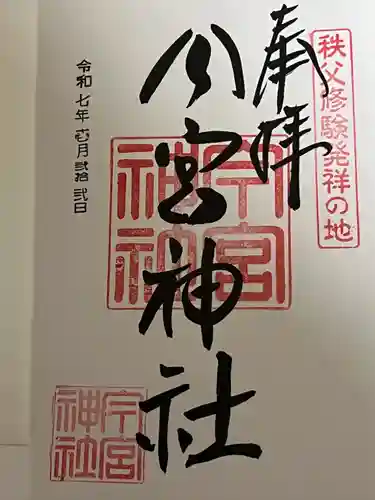 秩父修験発祥の地
奉拝
今宮神社
今宮
神社
今宮
神社
令和七年壱月弐拾弐日